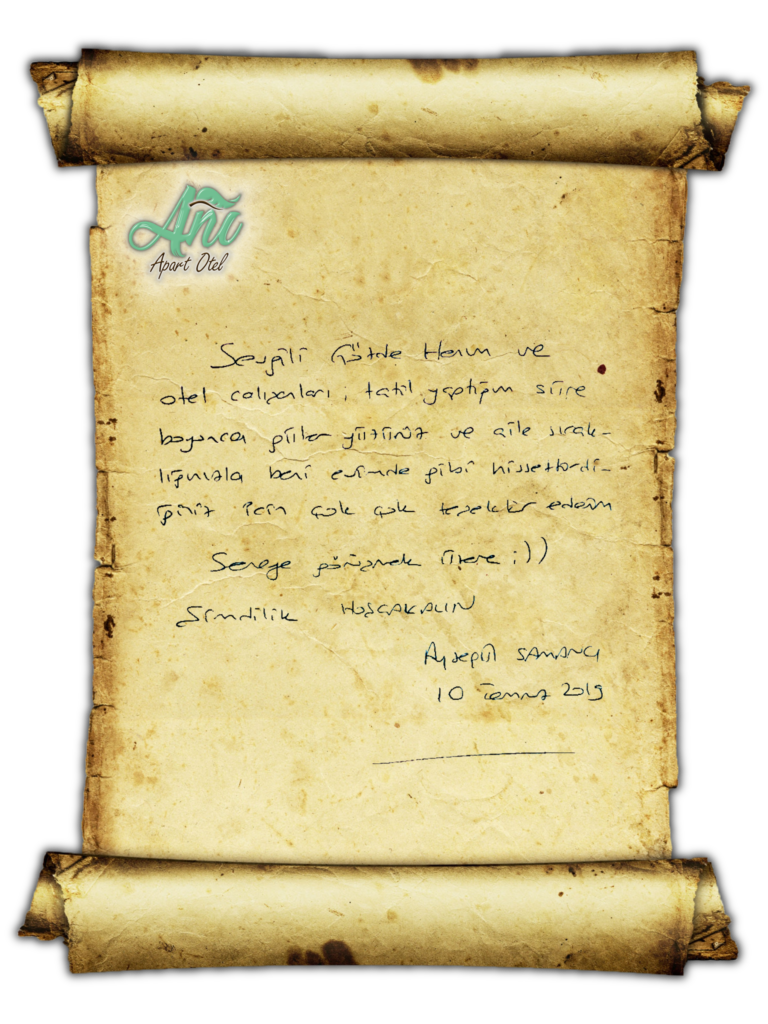 Anı
Apart Otel
Sevgili Gözde Hanım ve
otel calışanları ; tatil yaptığım süre
boyunca güler yüzünüz ve aile sıcak-
lığınızla beni evimde gibi hissettirdi-
ğiniz için çok çok teşekkür ederim
Seneye görüşmek üzere ;))
Şimdilik HOŞÇAKALIN
Ayşegül SAMANCI
10 Temmuz 2019